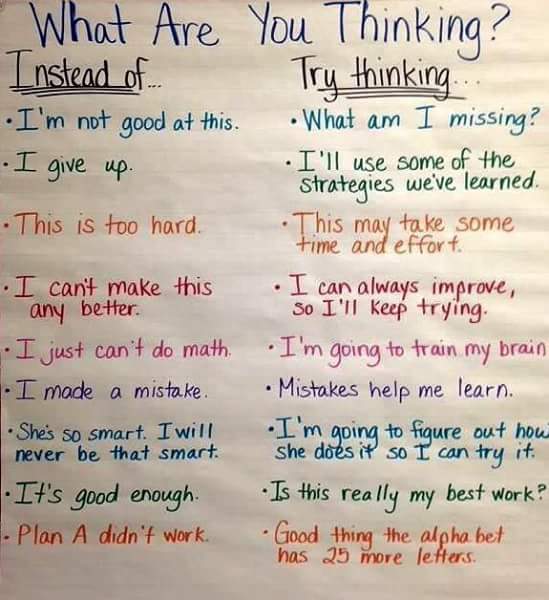 What Are You Thinking?
Instead of...
Try thinking...
• I'm not good at this.
• What am I missing?
• I give up.
• I'll use some of the
strategies we've learned.
• This is too hard.
• This may take some
time and effort.
• I can't make this
any better.
• I can always improve,
so I'll keep trying.
• I just can't do math.
• I'm going to train my brain
• I made a mistake.
• Mistakes help me learn.
• She's so smart. I will
never be that smart.
• I'm going to figure out how
she does it so I can try it.
• It's good enough.
• Is this really my best work?
• Plan A didn't work.
• Good thing the alphabet
has 25 more letters.